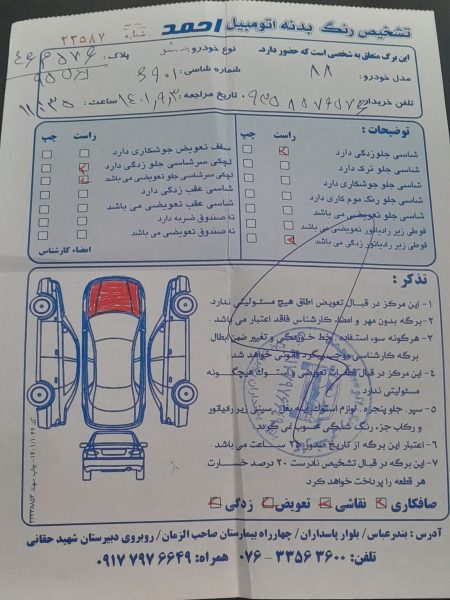 تشخیص رنگ بدنه اتومبیل احمد
شماره: ۲۲۵۸۷
این برگ متعلق به شخصی است که حضور دارد.
نوع خودرو:
پلاک:
مدل خودرو: ۸۸
شماره شاسی: ۳۹۰۱
تلفن خریدار:
تاریخ مراجعه: ۱۴۰۱,۹,۳
ساعت: ۱۱,۳۵
توضیحات:
راست
چپ
شاسی جلو زدگی دارد
شاسی جلو ترک دارد
شاسی جلو جوشکاری دارد
شاسی جلو رنگ موم کاری دارد
شاسی جلو تعویضی می باشد
قوطی زیر رادیاتور تعویضی می باشد
قوطی زیر رادیاتور زدگی می باشد
راست
چپ
سقف تعویض جوشکاری دارد
لچکی سرشاسی جلو زدگی دارد
لچکی سرشاسی جلو تعویضی می باشد
شاسی عقب زدگی دارد
شاسی عقب تعویضی می باشد
ته صندوق ضربه دارد
ته صندوق تعویضی می باشد
امضاء کارشناس
تذکر:
۱- این مرکز در قبال تعویض اطاق هیچ مسئولیتی ندارد.
۲- برگه بدون مهر و امضاء کارشناس فاقد اعتبار می باشد.
۳- هرگونه سوء استفاده، خط خوردگی و تغییر ضمن ابطال
برگه کارشناسی موجب پیگرد قانونی خواهد شد.
۴- این مرکز در قبال قطعات تعویضی و استوک هیچگونه
مسئولیتی ندارد.
۵- سپر، جلو پنجره، لوازم استوک، لبه بغل، سینی زیر رادیاتور
و رکاب جزء رنگ شدگی محسوب نمی گردد.
۶- اعتبار این برگه از تاریخ صدور ۲۵ ساعت می باشد.
۷- این برگه در قبال تشخیص نادرست ۲۰ درصد خسارت
هر قطعه را پرداخت خواهد کرد.
صافکاری
نقاشی
تعویض
زدگی
آدرس: بندرعباس/ بلوار پاسداران/ چهارراه بیمارستان صاحب الزمان/ روبروی دبیرستان شهید حقانی
تلفن: ۳۶۰۰ ۳۳۵۶ - ۰۷۶ همراه: ۶۶۴۹ ۷۹۷ ۰۹۱۷